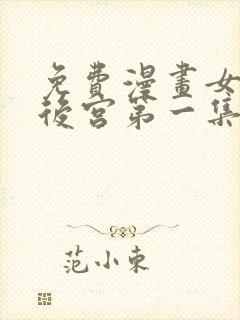 免費漫畫女
後宮第一集
范小東